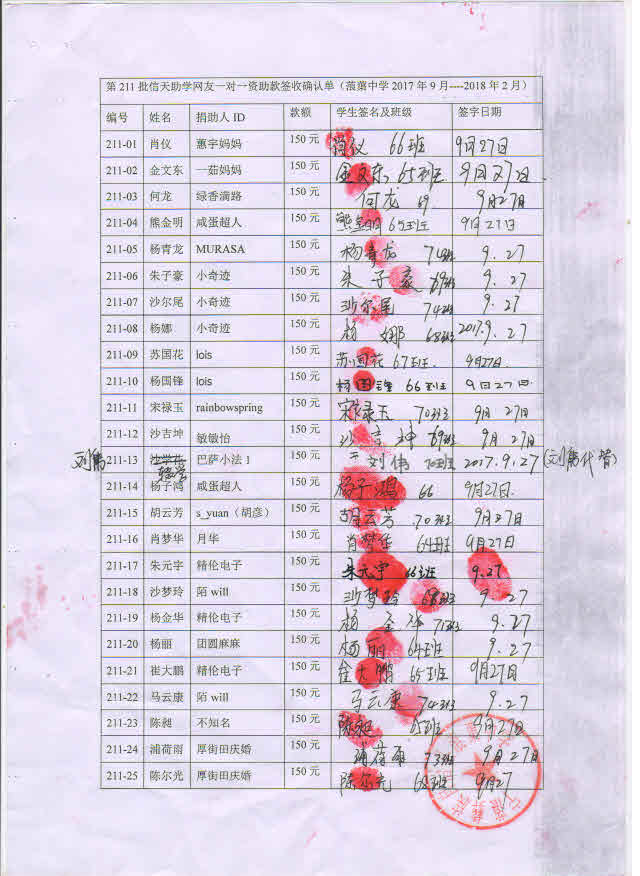 第 211 批信天助学网友一对一资助款签收确认单（菠萁中学 2017 年 9 月----2018 年 2 月）
编号 姓名 捐助人 ID 款额 学生签名及班级 签字日期
211-01 肖仪 蕙宇妈妈 150 元 肖仪 66班 9月27日
211-02 金文东 一茹妈妈 150 元 金文东 65班 9月27日
211-03 何龙 绿香满路 150 元 何龙 69 9月27日
211-04 熊金明 咸蛋超人 150 元 熊金明 65班 9月27日
211-05 杨青龙 MURASA 150 元 杨青龙 74班 9.27
211-06 朱子豪 小奇迹 150 元 朱子豪 69班 9.27
211-07 沙尔尾 小奇迹 150 元 沙尔尾 74班 9.27
211-08 杨娜 小奇迹 150 元 杨娜 68班 2017.9.27
211-09 苏国花 lois 150 元 苏国花 67班 9月27日
211-10 杨国锋 lois 150 元 杨国锋 66班 9月27日
211-11 宋禄玉 rainbowspring 150 元 宋禄玉 70班 9月27日
211-12 沙吉坤 敏敏怡 150 元 沙吉坤 69班 9月27日
刘伟 211-13 巴萨小法 1 150 元 刘伟 70班 2017.9.27 (刘伟代管)
辍学
211-14 杨子鸿 咸蛋超人 150 元 杨子鸿 66 9月27日.
211-15 胡云芳 s_yuan（胡彦） 150 元 胡云芳 70班 9月27日
211-16 肖梦华 月华 150 元 肖梦华 64班 9月27日
211-17 朱元宇 精伦电子 150 元 朱元宇 66班 9.27
211-18 沙梦玲 陌 will 150 元 沙梦玲 68班 9.27
211-19 杨金华 精伦电子 150 元 杨金华 71班 9.27
211-20 杨丽 团圆麻麻 150 元 杨丽 64班 9.27
211-21 崔大鹏 精伦电子 150 元 崔大鹏 65班 9月27日
211-22 马云康 陌 will 150 元 马云康 74班 9.27
211-23 陈昶 不知名 150 元 陈昶 65班 9月27日
211-24 浦荷雨 厚街田庆婚 150 元 浦荷雨 73班 9月27日
211-25 陈尔光 厚街田庆婚 150 元 陈尔光 68班 9月27